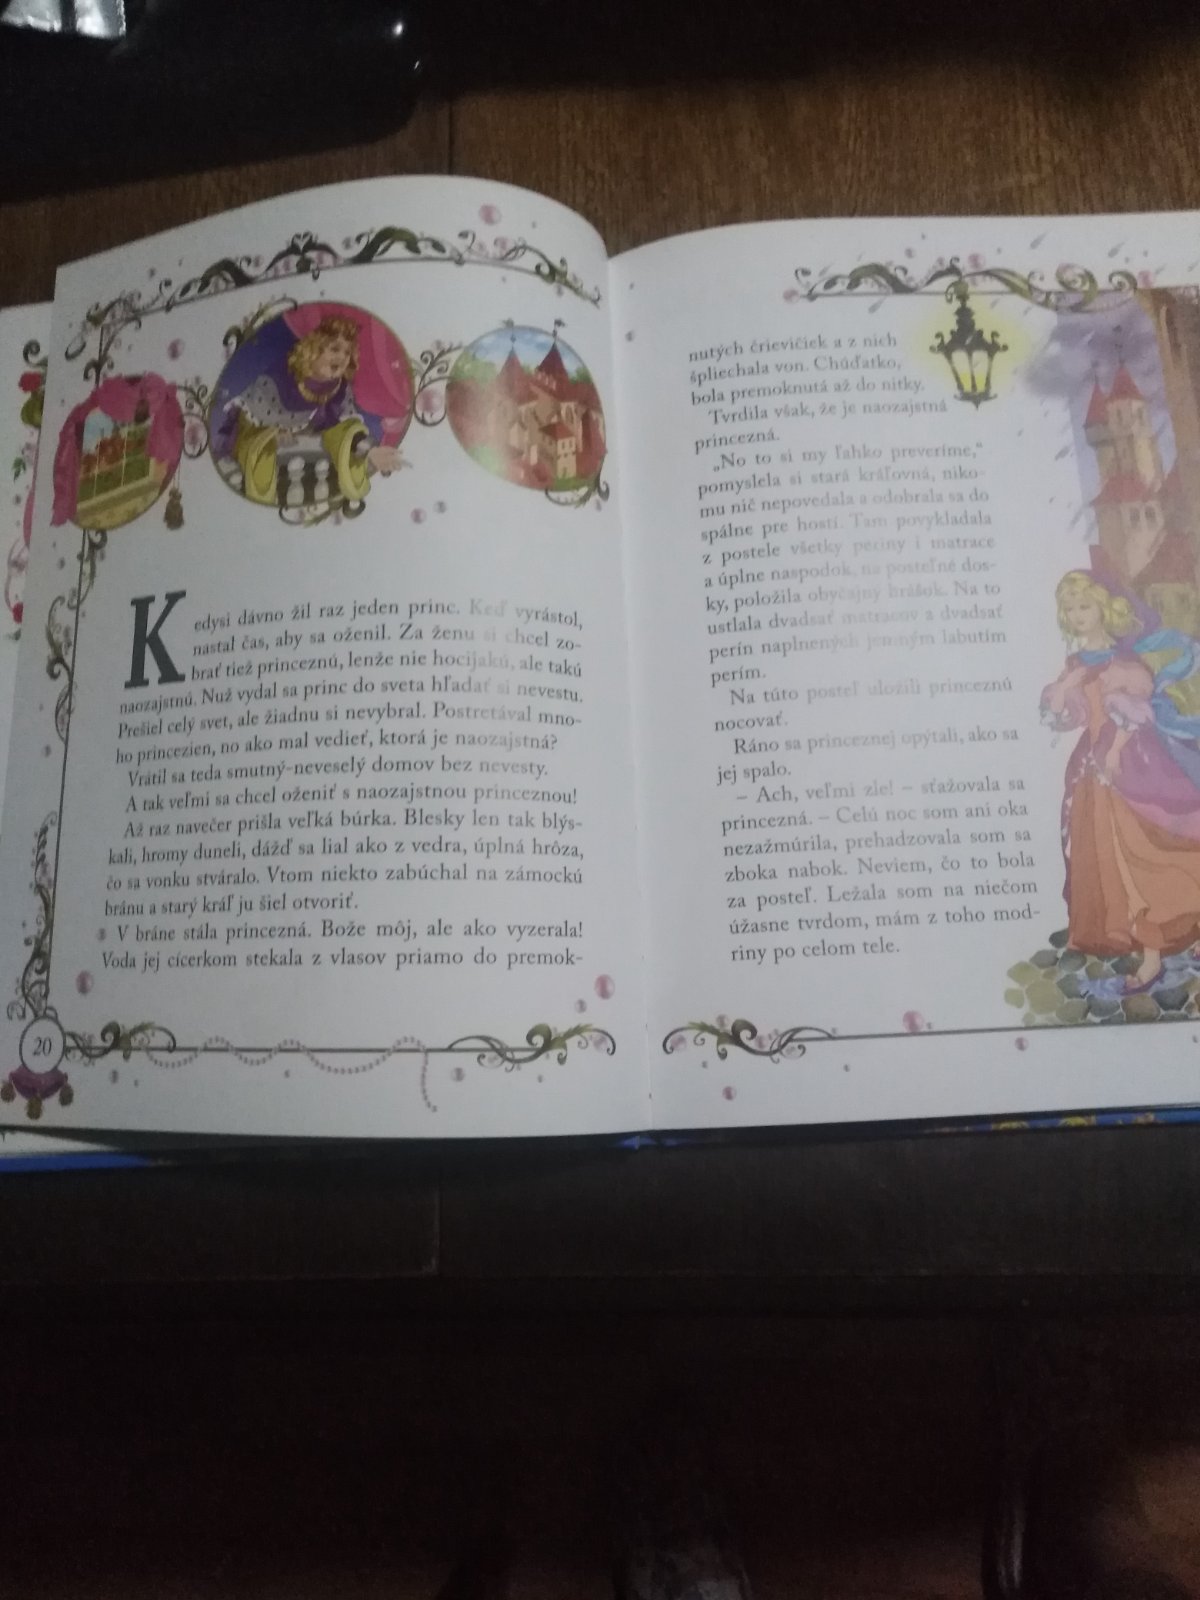 Kedysi dávno žil raz jeden princ. Keď vyrástol,
nastal čas, aby sa oženil. Za ženu si chcel zo-
brať tiež princeznú, lenže nie hocijakú, ale takú
naozajstnú. Nuž vydal sa princ do sveta hľadať si nevestu.
Prešiel celý svet, ale žiadnu si nevybral. Postretával mno-
ho princezien, no ako mal vedieť, ktorá je naozajstná?
Vrátil sa teda smutný-neveselý domov bez nevesty.
A tak veľmi sa chcel oženiť s naozajstnou princeznou!
Až raz navečer prišla veľká búrka. Blesky len tak blýs-
kali, hromy duneli, dážď sa lial ako z vedra, úplná hrôza,
čo sa vonku stváralo. Vtom niekto zabúchal na zámockú
bránu a starý kráľ ju šiel otvoriť.
V bráne stála princezná. Bože môj, ale ako vyzerala!
Voda jej cícerkom stekala z vlasov priamo do premok-
20
nutých črievičiek a z nich
špliechala von. Chúďatko,
bola premoknutá až do nitky.
Tvrdila však, že je naozajstná
princezná.
„No to si my ľahko preveríme,“
pomyslela si stará kráľovná, niko-
mu nič nepovedala a odobrala sa do
spálne pre hostí. Tam povykladala
z postele všetky periny i matrace
a úplne naspodok, na posteľné dos-
ky, položila obyčajný hrášok. Na to
ustlala dvadsať matracov a dvadsať
perín naplnených jemným labutím
perím.
Na túto posteľ uložili princeznú
nocovať.
Ráno sa princeznej opýtali, ako sa
jej spalo.
– Ach, veľmi zle! – sťažovala sa
princezná. – Celú noc som ani oka
nezažmúrila, prehadzovala som sa
zboka nabok. Neviem, čo to bola
za posteľ. Ležala som na niečom
úžasne tvrdom, mám z toho mod-
riny po celom tele.